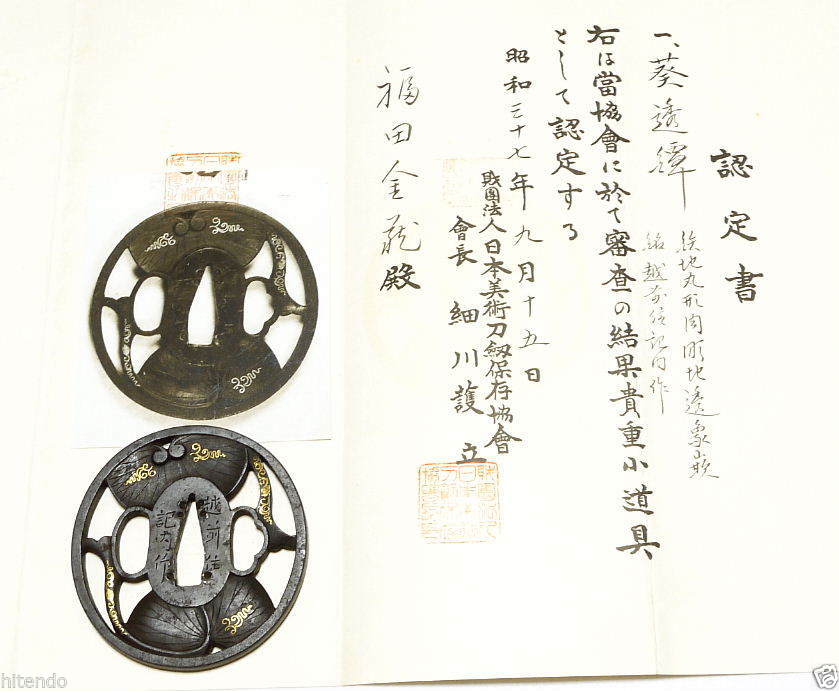 認定書
一、葵透鐔
鉄地丸形肉彫地透象嵌
銘 越前住記内作
右は當協會に於て審査の結果貴重小道具
として認定する
昭和三十七年九月十五日
財團法人日本美術刀劍保存協會
會長 細川護立
福田金龍殿
越前住
記内作
hitendo
hitendo